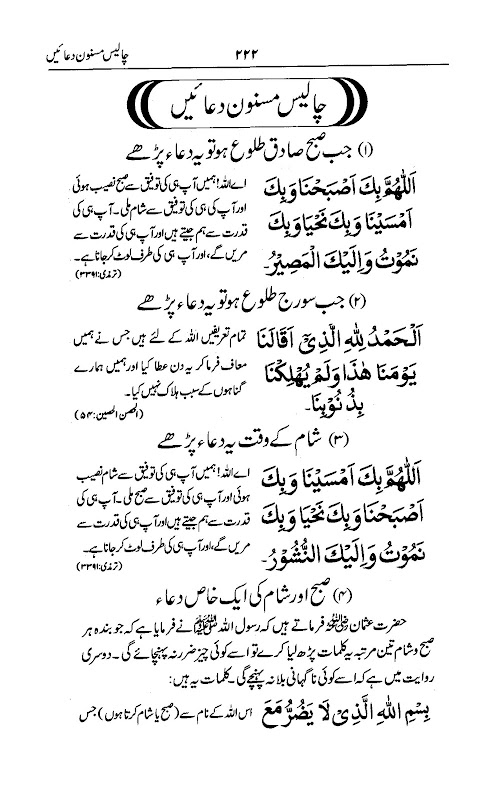 چالیس مسنون دعائیں ۲۲۲
چالیس مسنون دعائیں
(۱) جب صبح صادق طلوع ہو تو یہ دعاء پڑھے
اَللّٰهُمَّ بِكَ اَصْبَحْنَا وَبِكَ
اَمْسَيْنَا وَبِكَ نَحْيَا وَبِكَ
نَمُوْتُ وَاِلَيْكَ الْمَصِيْرُ۔
اے اللہ! ہمیں آپ ہی کی توفیق سے صبح نصیب ہوئی
اور آپ کی ہی کی توفیق سے شام ملی۔ آپ ہی کی
قدرت سے ہم جیتے ہیں اور آپ ہی کی قدرت سے
مریں گے، اور آپ ہی کی طرف لوٹ کر جانا ہے۔
(ترمذی:۳۳۹۱)
(۲) جب سورج طلوع ہو تو یہ دعاء پڑھے
اَلْحَمْدُ لِلّٰهِ الَّذِيْ اَقَالَنَا
يَوْمَنَا هٰذَا وَلَمْ يُهْلِكْنَا
بِذُنُوْبِنَا۔
تمام تعریفیں اللہ کے لئے ہیں جس نے ہمیں
معاف فرما کر یہ دن عطا کیا اور ہمیں ہمارے
گناہوں کے سبب ہلاک نہیں کیا۔
(الحصن الحصین:۵۴)
(۳) شام کے وقت یہ دعاء پڑھے
اَللّٰهُمَّ بِكَ اَمْسَيْنَا وَبِكَ
اَصْبَحْنَا وَبِكَ نَحْيَا وَبِكَ
نَمُوْتُ وَاِلَيْكَ النُّشُوْرُ۔
اے اللہ! ہمیں آپ ہی کی توفیق سے شام نصیب
ہوئی اور آپ ہی کی توفیق سے صبح ملی۔ آپ ہی کی
قدرت سے ہم جیتے ہیں اور آپ ہی کی قدرت سے
مریں گے، اور آپ ہی کی طرف لوٹ کر جانا ہے۔
(ترمذی:۳۳۹۱)
(۴) صبح اور شام کی ایک خاص دعاء
حضرت عثمان رضی اللہ عنہ فرماتے ہیں کہ رسول اللہ ﷺ نے فرمایا ہے کہ جو بندہ ہر
صبح و شام تین مرتبہ یہ کلمات پڑھ لیا کرے تو اسے کوئی چیز ضرر نہ پہنچائے گی۔ دوسری
روایت میں ہے کہ اسے کوئی ناگہانی بلا نہ پہنچے گی۔ کلمات یہ ہیں:
بِسْمِ اللّٰهِ الَّذِيْ لَا يَضُرُّ مَعَ
اس اللہ کے نام سے (صبح یا شام کرتا ہوں) جس